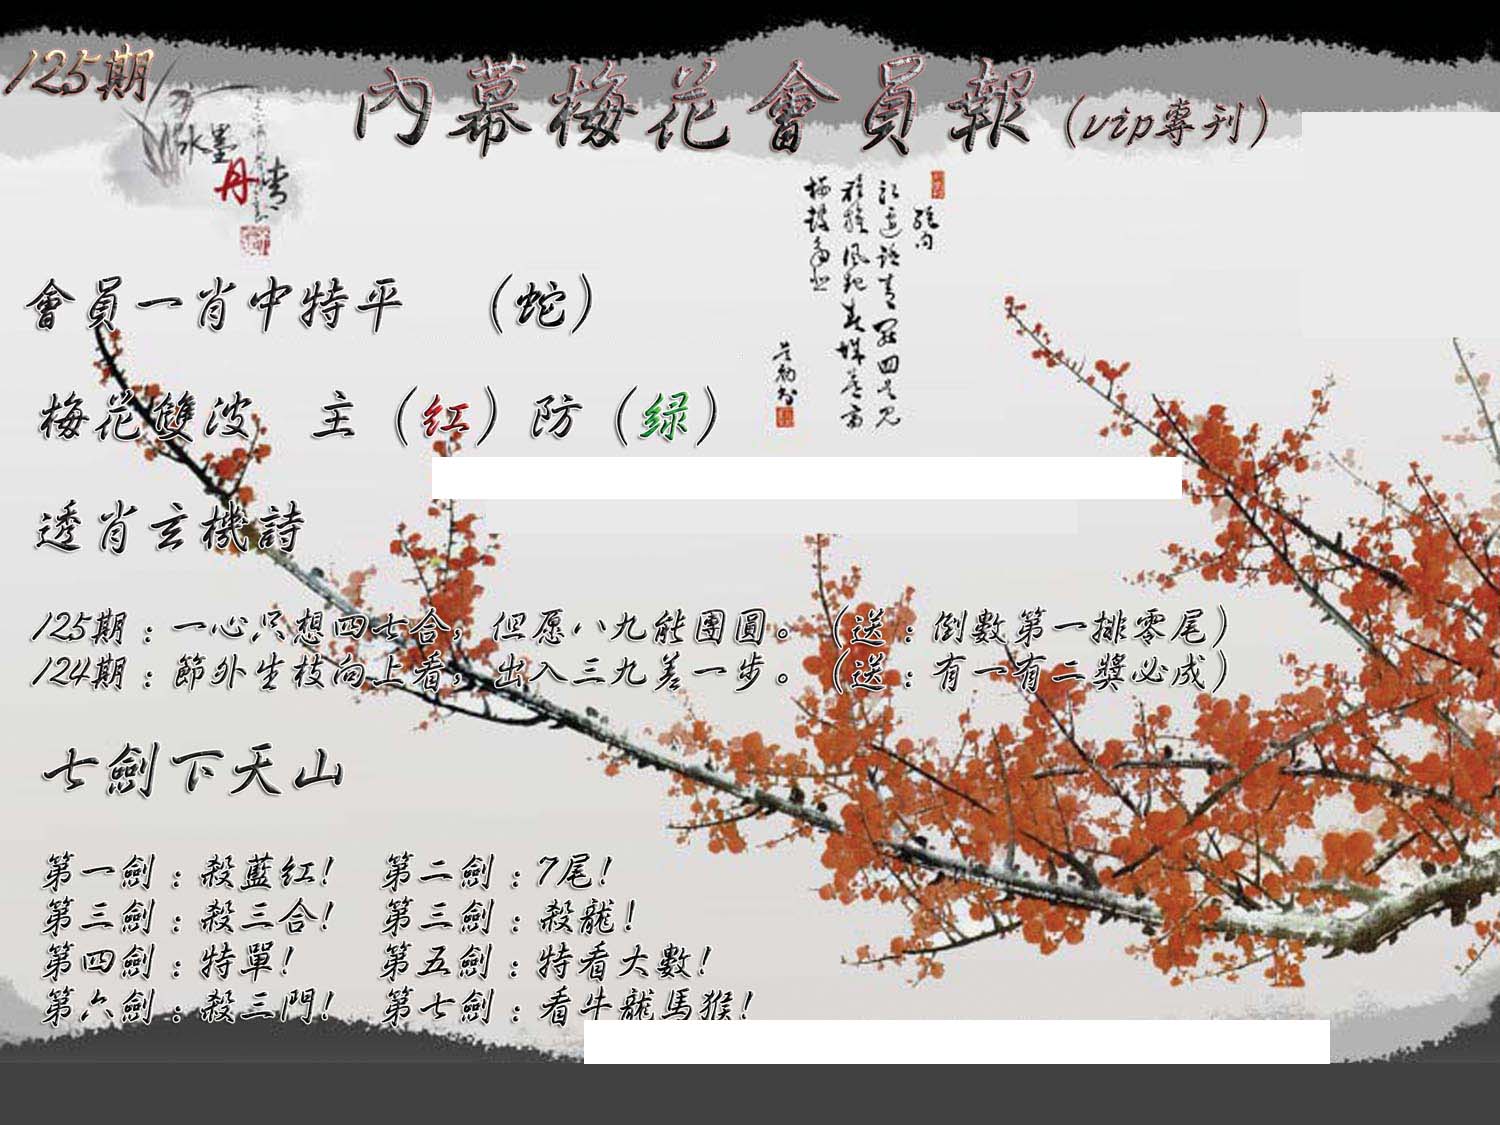 125期
內幕梅花會員報(vip專刊)
水墨
丹青
會員一肖中特平 (蛇)
梅花雙波 主(红)防(绿)
透肖玄機詩
125期:一心只想四七合,但愿八九能團圓。(送:倒數第一排零尾)
124期:節外生枝向上看,出入三九差一步。(送:有一有二獎必成)
七劍下天山
第一劍:殺藍紅! 第二劍:7尾!
第三劍:殺三合! 第三劍:殺龍!
第四劍:特單! 第五劍:特看大數!
第六劍:殺三門! 第七劍:看牛龍馬猴!